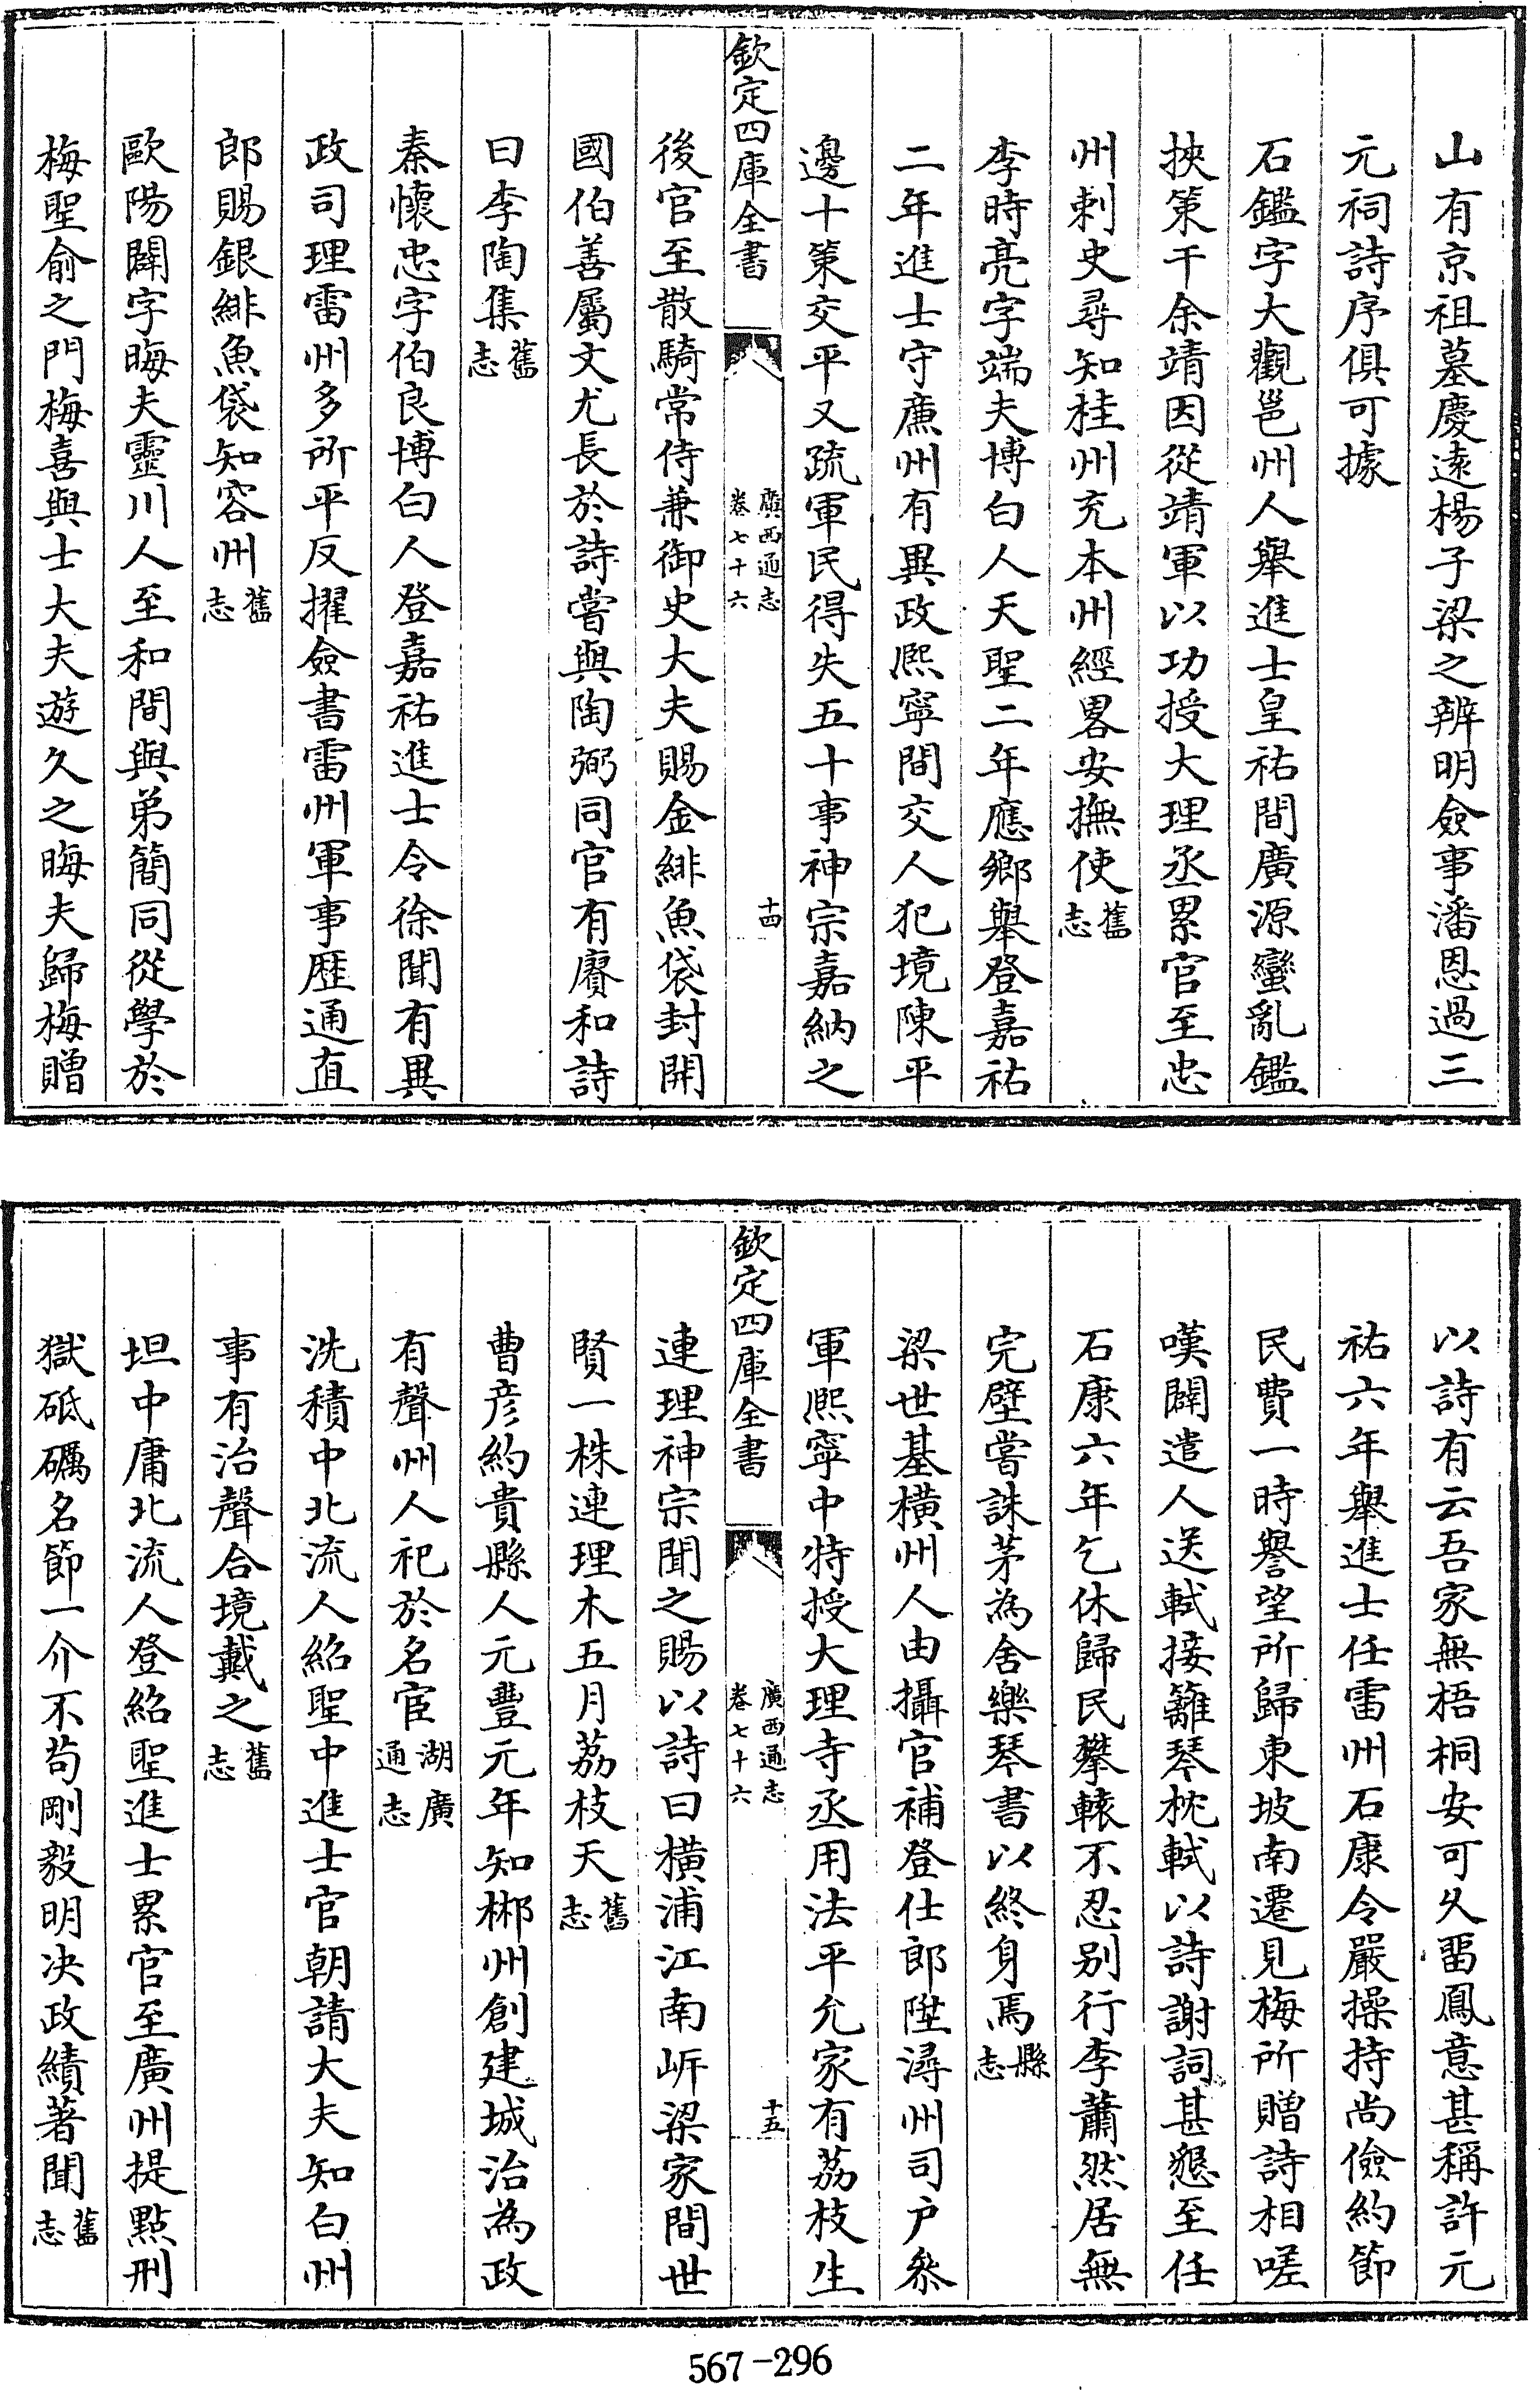 山有京祖墓慶遠楊子梁之辨明僉事潘恩過三
元祠詩序俱可據
石鑑字大觀邕州人舉進士皇祐間廣源蠻亂鑑
挾策干余靖因從靖軍以功授大理丞累官至忠
州刺史尋知桂州充本州經畧安撫使舊志
李時亮字端夫博白人天聖二年應鄉舉登嘉祐
二年進士守㢘州有異政熈寧間交人犯境陳平
邊十策交平又疏軍民得失五十事神宗嘉納之
欽定四庫全書
廣西通志
卷七十六
十四
後官至散騎常侍兼御史大夫賜金緋魚袋封開
國伯善屬文尤長於詩嘗與陶弼同官有賡和詩
曰李陶集舊志
秦懷忠字伯良博白人登嘉祐進士令徐聞有異
政司理雷州多所平反擢僉書雷州軍事歴通直
郎賜銀緋魚袋知容州舊志
歐陽闢字晦夫靈川人至和間與弟簡同從學於
梅聖俞之門梅喜與士大夫遊久之晦夫歸梅贈
以詩有云吾家無梧桐安可久畱鳳意甚稱許元
祐六年舉進士任雷州石康令嚴操持尚儉約節
民費一時譽望所歸東坡南遷見梅所贈詩相嗟
嘆闢遣人送軾接籬琴枕軾以詩謝詞甚懇至任
石康六年乞休歸民攀轅不忍别行李蕭然居無
完壁嘗誅茅為舍樂琴書以終身焉縣志
梁世基橫州人由攝官補登仕郎陞潯州司户叅
軍熈寧中特授大理寺丞用法平允家有荔枝生
欽定四庫全書
廣西通志
卷七十六
十五
連理神宗聞之賜以詩曰橫浦江南岍梁家間世
賢一株連理木五月荔枝天舊志
曹彦約貴縣人元豐元年知郴州創建城治為政
有聲州人祀於名宦湖廣通志
冼積中北流人紹聖中進士官朝請大夫知白州
事有治聲合境戴之舊志
坦中庸北流人登紹聖進士累官至廣州提點刑
獄砥礪名節一介不苟剛毅明决政績著聞舊志
567-296